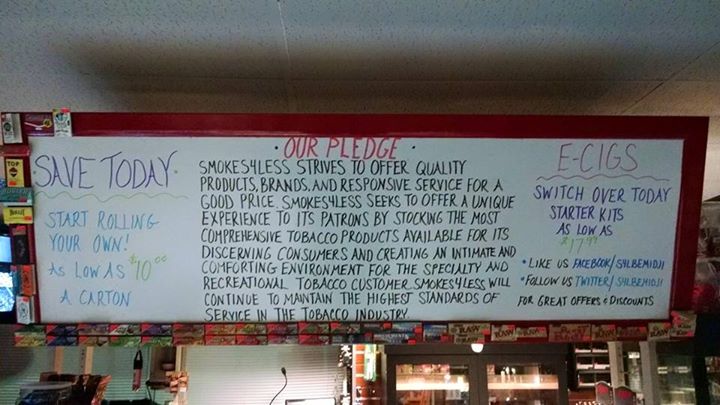 SAVE TODAY.
START ROLLING
YOUR OWN!
AS LOW AS $10.00
A CARTON
• OUR PLEDGE •
SMOKES4LESS STRIVES TO OFFER QUALITY
PRODUCTS, BRANDS, AND RESPONSIVE SERVICE FOR A
GOOD PRICE. SMOKES4LESS SEEKS TO OFFER A UNIQUE
EXPERIENCE TO ITS PATRONS BY STOCKING THE MOST
COMPREHENSIVE TOBACCO PRODUCTS AVAILABLE FOR ITS
DISCERNING CONSUMERS AND CREATING AN INTIMATE AND
COMFORTING ENVIRONMENT FOR THE SPECIALTY AND
RECREATIONAL TOBACCO CUSTOMER. SMOKES4LESS WILL
CONTINUE TO MAINTAIN THE HIGHEST STANDARDS OF
SERVICE IN THE TOBACCO INDUSTRY.
E-CIGS
SWITCH OVER TODAY
STARTER KITS
AS LOW AS
$17.99
• LIKE US FACEBOOK/S4LBEMIDJI
• FOLLOW US TWITTER/S4LBEMIDJI
FOR GREAT OFFERS & DISCOUNTS
TOP
RAW
RAW
RAW